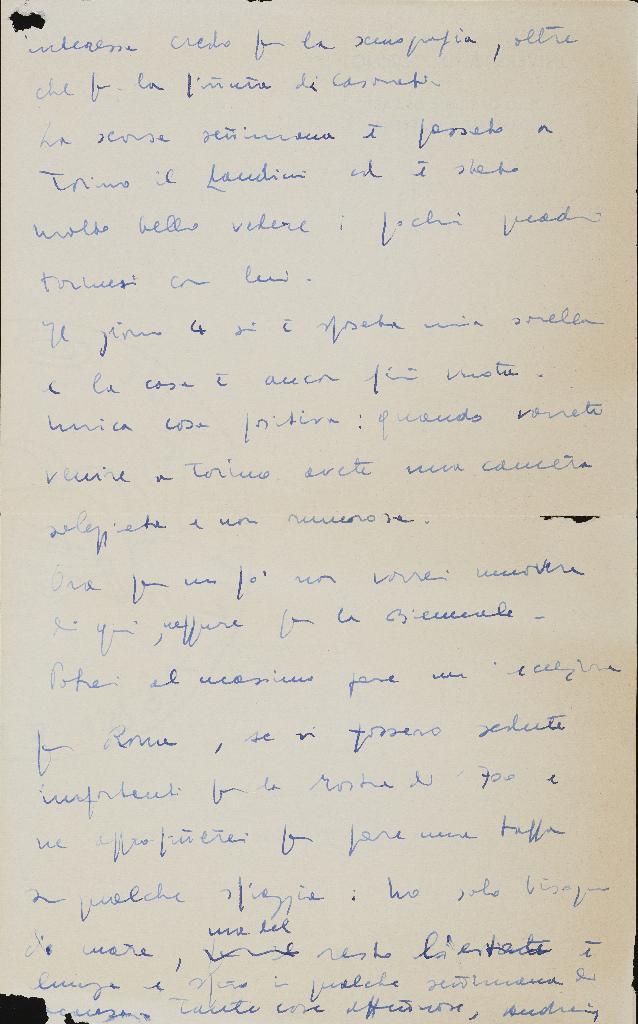 interessa credo per la scenografia, oltre
che per la pittura di Casorati.
La scorsa settimana è passato a
Torino il Landini ed è stato
molto bello vedere i pochi quadri
torinesi con lui.
Il giorno 4 si è sposata mia sorella
e la casa è ancor più vuota.
Unica cosa positiva: quando vorrete
venire a Torino avete una camera
soleggiata e non rumorosa.
Ora per un po' non vorrei muovermi
di qui, neppure per la Biennale.
Potrei al massimo fare un'eccezione
per Roma, se vi fossero sedute
importanti per la Mostra del '700 e
ne approfitterei per fare una tappa
su qualche spiaggia: ho solo bisogno
di mare, ma del resto l'estate è
lunga e spero in qualche settimana di
Tante cose affettuose,